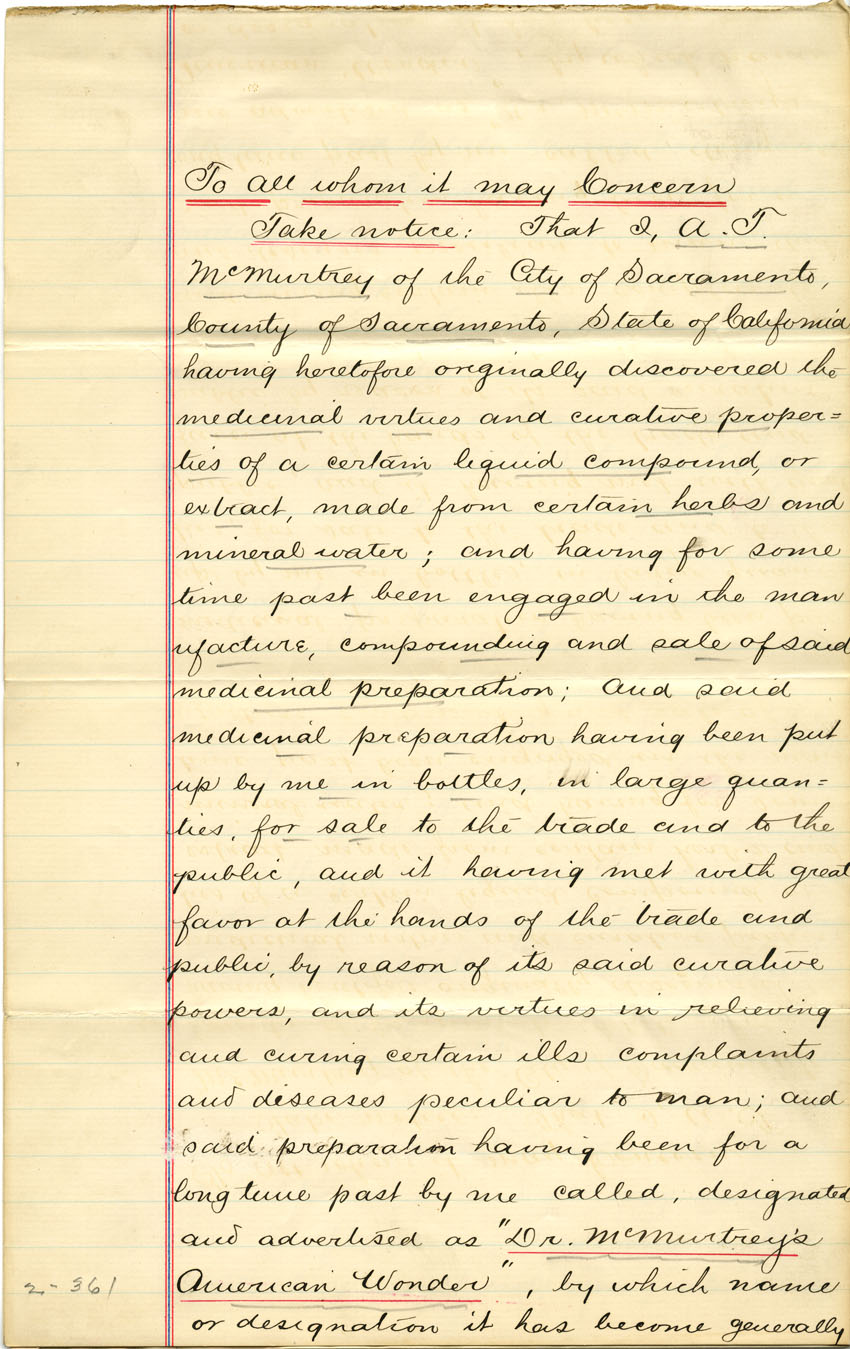 To all whom it may Concern
Take notice: That I, A. T.
McMurtrey of the City of Sacramento,
County of Sacramento, State of California
having heretofore originally discovered the
medicinal virtues and curative proper=
ties of a certain liquid compound, or
extract, made from certain herbs and
mineral water; and having for some
time past been engaged in the man
ufacture, compounding and sale of said
medicinal preparation; and said
medicinal preparation having been put
up by me in bottles, in large quan=
ties, for sale to the trade and to the
public, and it having met with great
favor at the hands of the trade and
public, by reason of its said curative
powers, and its virtues in relieving
and curing certain ills complaints
and diseases peculiar to man; and
said preparation having been for a
long time past by me called, designated
and advertised as "Dr. McMurtrey's
American Wonder", by which name
2-361
or designation it has become generally